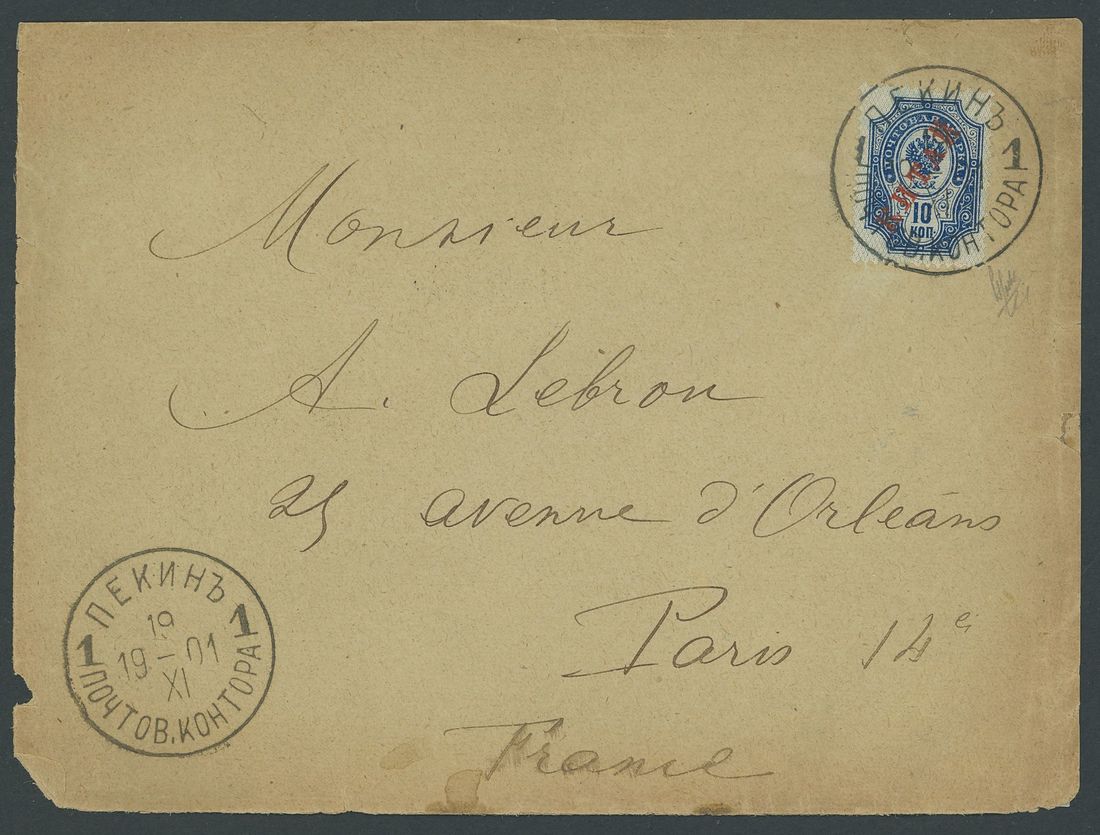 ПЕКИНЪ
1 1
ПОЧТОВ.КОНТОРА
ПОЧТОВАЯ МАРКА
КИТАЙ
10
КОП
Monsieur
A. Lebron
25 avenue d'Orléans
Paris 14e
France
ПЕКИНЪ
1 1
19
19 – 01
XI
ПОЧТОВ.КОНТОРА